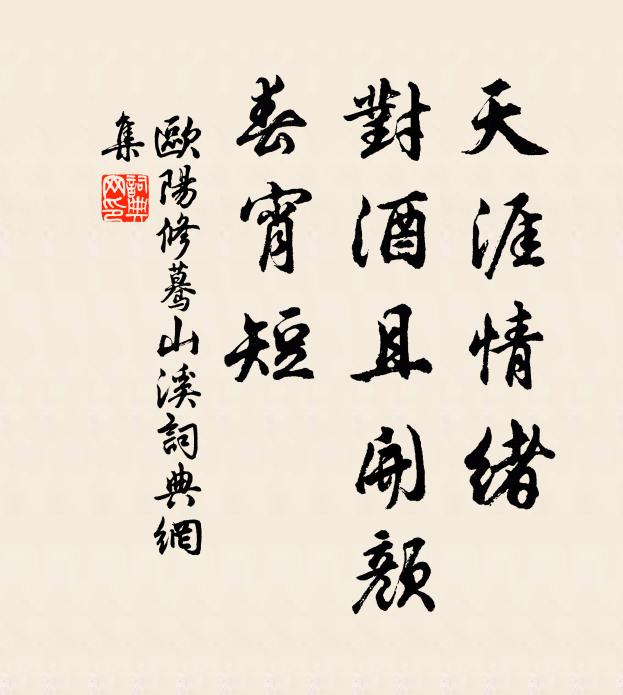 天涯情緒
對酒且開顏
春宵短
歐陽修驀山溪詞典網
集
詞典
网印